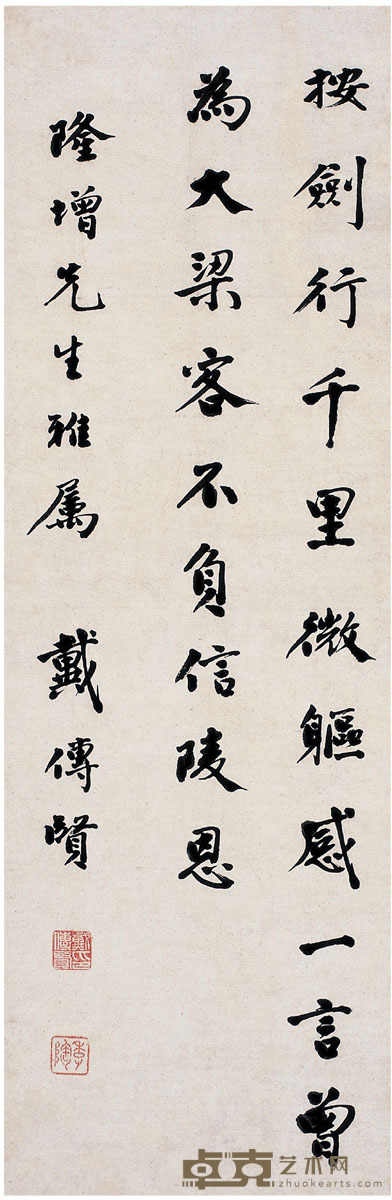 按劍行千里微軀感一言曾
為大梁客不負信陵恩
隆增先生雅属 戴傳賢
戴氏傳賢
季陶
卓克艺术网
zhuokearts.com